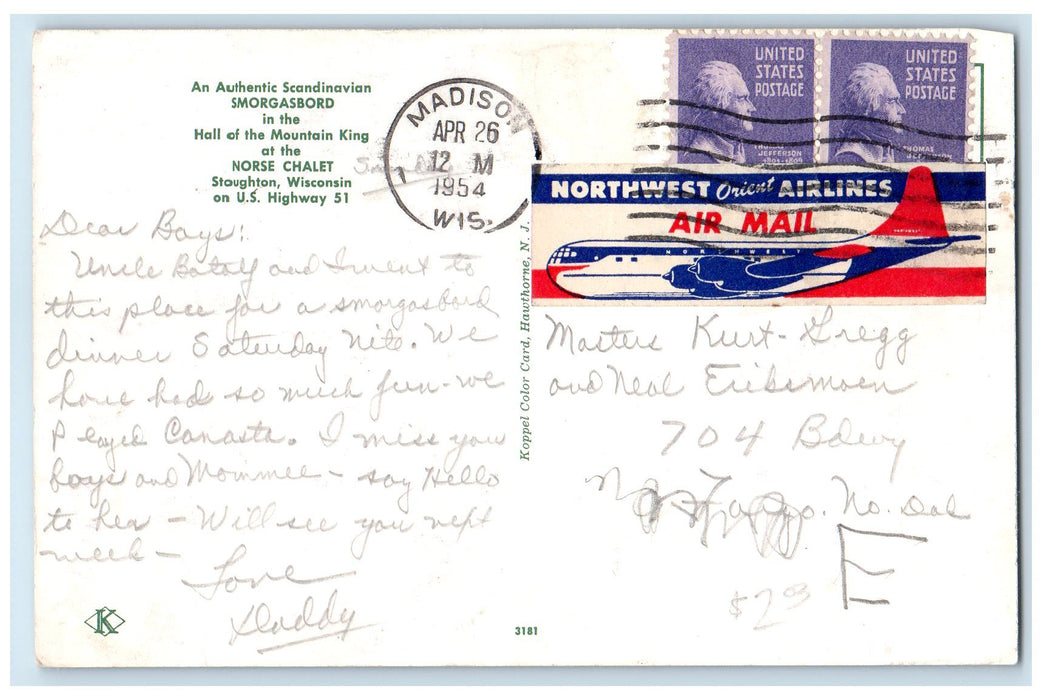 An Authentic Scandinavian
SMORGASBORD
in the
Hall of the Mountain King
at the
NORSE CHALET
Stoughton, Wisconsin
on U.S. Highway 51
MADISON
APR 26
12 M
1954
WIS.
1
UNITED
STATES
POSTAGE
THOMAS
JEFFERSON
1801-1809
UNITED
STATES
POSTAGE
THOMAS
JEFFERSON
NORTHWEST Orient AIRLINES
AIR MAIL
NORTHWEST
Dear Boys:
Uncle and I went to
this place for a smorgasbord
dinner Saturday Nite. We
have had so much fun - we
played Canasta. I miss you
boys and Mommee - say Hello
to her - Will see you next
week -
Love
Daddy
Koppel Color Card, Hawthorne, N. J.
Masters Kurt - Gregg
and Neal Eriksmoen
704 Bdwy
Fargo. No. Dak
E
$2.00
K
3181